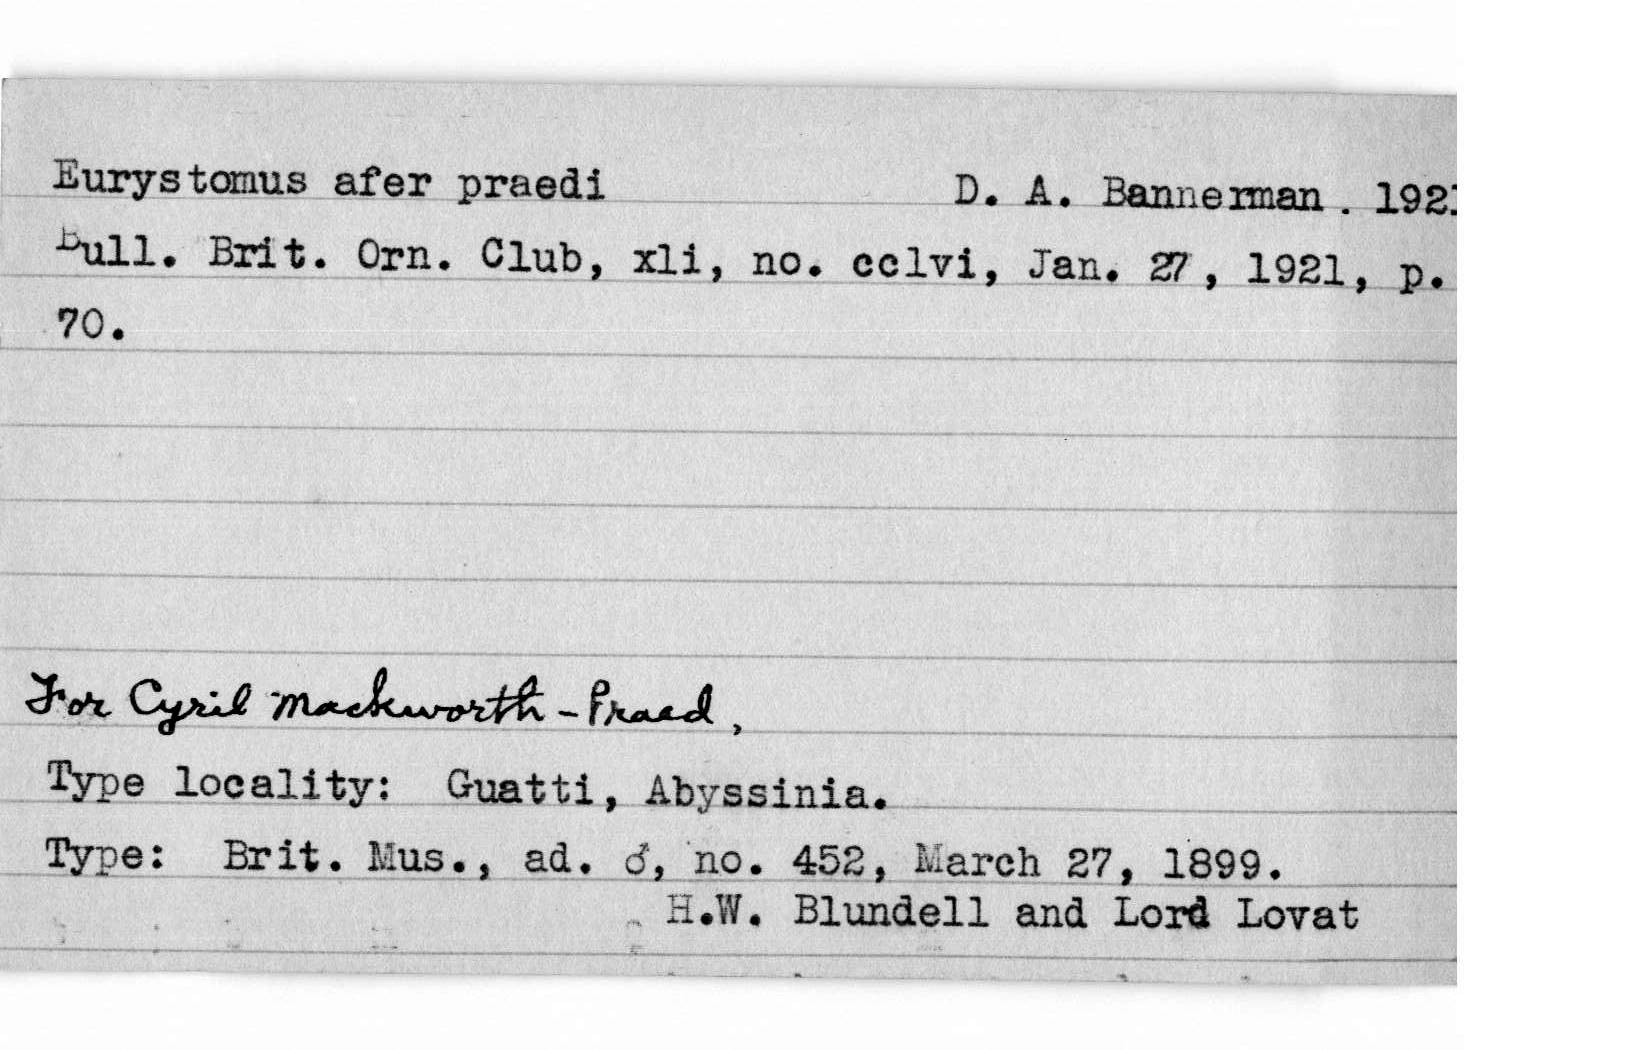 Eurystomus afer praedi D. A. Bannerman. 1921
Bull. Brit. Orn. Club, xli, no. cclvi, Jan. 27, 1921, p.
70.
For Cyril Mackworth-Praed,
Type locality: Guatti, Abyssinia.
Type: Brit. Mus., ad. ♂, no. 452, March 27, 1899.
H.W. Blundell and Lord Lovat